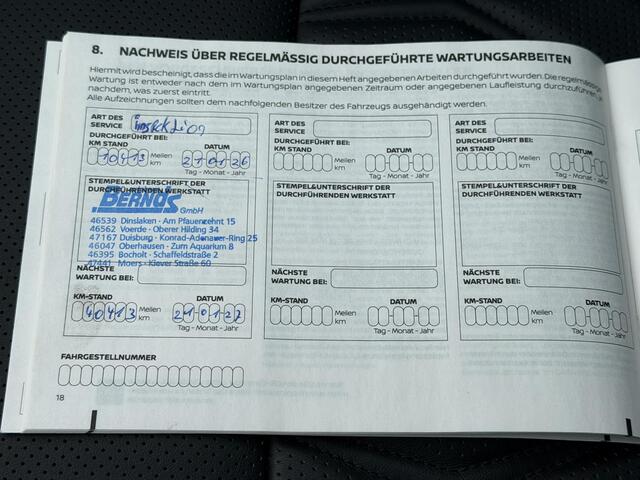 8. NACHWEIS ÜBER REGELMÄSSIG DURCHGEFÜHRTE WARTUNGSARBEITEN
Hiermit wird bescheinigt, dass die im Wartungsplan in diesem Heft angegebenen Arbeiten durchgeführt wurden. Die regelmässige
Wartung ist entweder nach dem im Wartungsplan angegebenen Zeitraum oder angegebenen Laufleistung durchzuführen, je
nachdem, was zuerst eintritt.
Alle Aufzeichnungen sollten dem nachfolgenden Besitzer des Fahrzeugs ausgehändigt werden.
ART DES SERVICE Inspektion
DURCHGEFÜHRT BEI:
KM STAND DATUM
10413 Meilen km 21 01 26
Tag - Monat - Jahr
STEMPEL&UNTERSCHRIFT DER
DURCHFÜHRENDEN WERKSTATT
BERNDS GmbH
46539 Dinslaken · Am Pfauenzehnt 15
46562 Voerde · Oberer Hilding 34
47167 Duisburg · Konrad-Adenauer-Ring 25
46047 Oberhausen · Zum Aquarium 8
46395 Bocholt · Schaffeldstraße 2
47441 Moers · Klever Straße 60
NÄCHSTE
WARTUNG BEI:
KM-STAND DATUM
40413 Meilen km 21 01 27
Tag - Monat - Jahr
ART DES SERVICE
DURCHGEFÜHRT BEI:
KM STAND DATUM
Meilen km
Tag - Monat - Jahr
STEMPEL&UNTERSCHRIFT DER
DURCHFÜHRENDEN WERKSTATT
NÄCHSTE
WARTUNG BEI:
KM-STAND DATUM
Meilen km
Tag - Monat - Jahr
ART DES SERVICE
DURCHGEFÜHRT BEI:
KM STAND DATUM
Meilen km
Tag - Monat - Jahr
STEMPEL&UNTERSCHRIFT DER
DURCHFÜHRENDEN WERKSTATT
NÄCHSTE
WARTUNG BEI:
KM-STAND DATUM
Meilen km
Tag - Monat - Jahr
FAHRGESTELLNUMMER
18